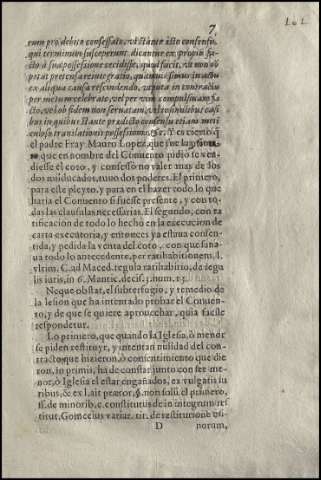 7
eum pro debito confessato, vt stante isto consensu,
qui terminum susceperunt dicantur ex proprio fa-
cto à sua possessione cecidisse, quod facit, vt non ob-
ex aliqua causa rescindendo, vt puta in contractu
per metum celebrato, vel per vim compulsiuam fa-
cto, vel ob fidem non seruatam, vel in similibus casi
bus in quibus stante prædicto consensu etiam meti
culoso translatio possessionis, &c. Y es cierto, q̃
el padre Fray Mauro Lopez, que fue la persona
que en nombre del Conuento pidio se ven-
diesse el coto, y confessò no valer mas de los
dos mil ducados, tuuo dos poderes. El primero,
para este pleyto, y para en el hazer todo lo que
haria el Conuento si fuesse presente, y con to-
das las clausulas necessarias. El segundo, con ra
tificacion de todo lo hecho en la execucion de
carta executoria, y entonces ya estaua consen-
tida, y pedida la venta del coto, con que sana-
ua todo lo antecedente, per ratihabitionem, l.
vltim. C. ad Maced. regula ratihabitio, de regu
lis iuris, in 6. Mantic. decis. 3. num. 13.
Ne que obstat, el subterfugio, y remedio de
la lesion que ha intentado probar el Conuen-
to, y de que se quiere aprouechar, quia facile
respondetur.
Lo primero, que quando la Iglesia, ò menor
se piden restituyr, y intentan nulidad del con-
tracto que hizieron, ò consentimiento que die
ron, in primis, ha de constar junto con ser me-
nor, ò Iglesia el estar engañados, ex vulgatis iu
ribus, & ex l. ait prætor, §. non solũ el primero,
ff. de minorib. c. constitutus de in integrum res
titut. Gomecius variar. tit. de restitutione mi-
D norum,